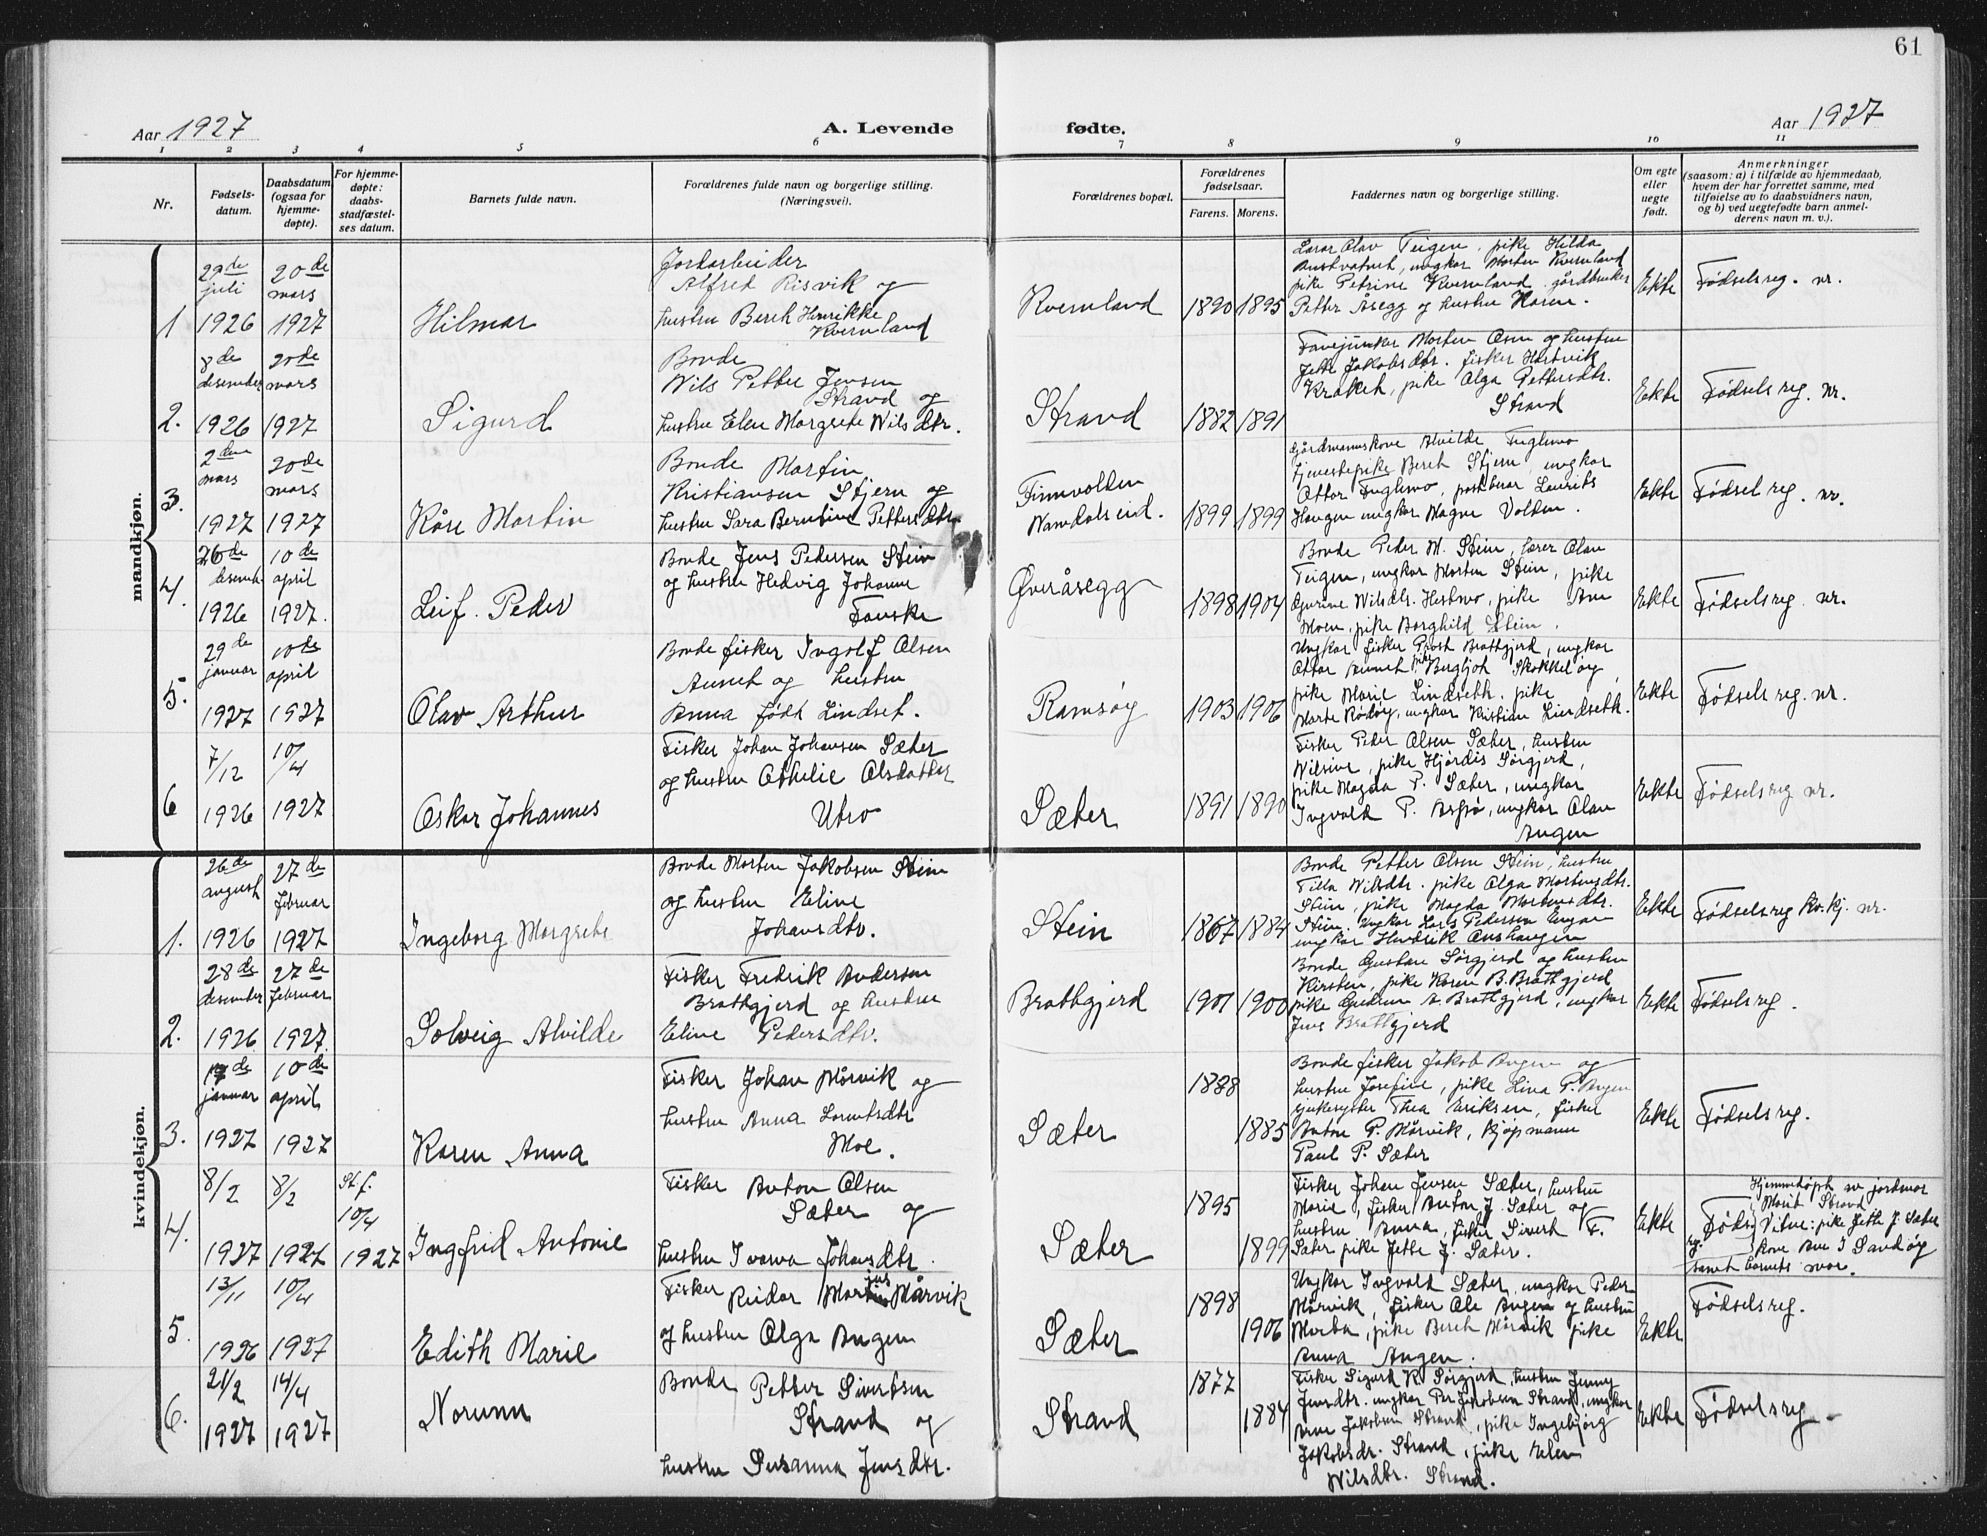 61
Aar 1927
A. Levende fødte.
Aar 1927
1 2 3 4 5 6 7 8 9 10 11
Nr.
Fødsels-
datum.
Daabsdatum
(ogsaa for
hjemme-
døpte).
For hjemme-
døpte:
daabs-
stadfæstel-
ses datum.
Barnets fulde navn.
Forældrenes fulde navn og borgerlige stilling.
(Næringsvei).
Forældrenes bopæl.
Forældrenes
fødselsaar.
Farens. Morens.
Faddernes navn og borgerlige stilling.
Om egte
eller
uegte
født.
Anmerkninger
(saasom: a) i tilfælde av hjemmedaab,
hvem der har forrettet samme, med
tilføielse av to daabsvidners navn,
og b) ved uegtefødte barn anmel-
derens navn m. v.).
mandkjøn.
1
29de juli 1926
20de mars 1927
Hilmar
Jordarbeider
Alfred Risvik og
hustru Bereh Henrikke
Kvernland
Kvernland
1890 1895
Lærer Olav Teigen, pike Hilda
ungkar Morten Kvernland
pike Petrine Kvernland, gårdbruker
Petter Åsegg og hustru Karen.
Ekte
Fødselsreg. nr.
2.
8de desember 1926
20de mars 1927
Sigurd
Bonde
Nils Petter Jensen
Strand og
hustru Elen Margrete Nilsdtr.
Strand
1882 1891
Morten Åsen og hustru
Jette Jakobsdtr. fisker Hartvik
pike Alga Pettersdtr.
Strand
Ekte
Fødselsreg. nr.
3.
2den mars 1927
20de mars 1927
Kåre Martin
Bonde Martin
Kristiansen Stjern og
hustru Sara Berntine Pettersdtr.
Finnvolden
Namdalseid.
1899 1899
Gårdmannskone Alvilde Fuglemo
tjenestepike Bereh Stjern, ungkar
Ottar Fuglemo, postbud Laurits
Haugen ungkar Magne Volden.
Ekte
Fødselreg. nr.
4.
26de desemb. 1926
10de april 1927.
Leif. Peder
Bonde Jens Pedersen Stein
og hustru Hedvig Johanne
Fauske
Øveråsegg
1898 1904
Bonde Peder M. Stein, lærer Olav
Teigen, ungkar Morten Stein, pike
Gurine Nilsdtr. Hestmo, pike Ane
Moen, pike Borghild Stein.
Ekte
Fødselsreg. nr.
5.
29de januar 1927
10de april 1927
Olav Arthur
Bonde fisker Ingolf Olsen
Aunet og hustru
Anna født Lindset.
Ramsøy
1903 1906
Ungkar fisker Prost Brattgjerd, ungkar
Ottar Aunet pike Bergljot Skokkel og
pike Marie Lindseth. pike
Marte Rødøy, ungkar Kristian Lindseth.
Ekte
Fødselsreg. nr.
6
7/12 1926
10/4 1927
Oskar Johannes
Fisker Johan Johansen Sæter
og hustru Othelie Olsdatter
Utro
Sæter
1891 1890
Fisker Peder Olsen Sæter, hustru
Nilsine, pike Hjørdis Sørgjerd,
pike Magda P. Sæter, ungkar
Ingvald P. ungkar Olav
Angen
Ekte
Fødselsreg nr.
kvindekjøn.
1.
26de august 1926
27de februar 1927
Ingeborg Margrete
Bonde Morten Jakobsen Stein
og hustru Eline
Johansdtr.
Stein
1867 1884
Bonde Petter Olsen Stein, hustru
Tilla Nilsdtr. pike Olga Mortensdtr.
Stein, pike Magda Mortensdtr.
Stein. Ungkar Lars Pedersen
ungkar Hendrik Aunshaugen
Ekte
Fødselsreg Kv.kj. nr.
2.
28de desember 1926
27de februar 1927
Solveig Alvilde
Fisker Fredrik Andersen
Brattgjerd og hustru
Eline Pedersdtr.
Brattgjerd
1901 1900
Bonde Gustav Sørgjerd og hustru
Kirsten, pike Karen B. Brattgjerd
pike Gudrun A Brattgjerd, ungkar
Jens Brattgjerd
Ekte
Fødselsreg.
3.
17de januar 1927
10de april 1927
Karen Anna
Fisker Johan Mårvik og
hustru Anna Lorentsdtr
Moe.
Sæter
1888 1885
Bonde fisker Jakob Angen og
hustru Josefine, pike Lina P. Angen
sykesyster Thea Eriksen, fisker
Anton P. Mårvik, kjøpmann
Paul P. Sæter
Ekte
Fødselsreg.
4.
8/2 1927
8/2 1927
St.f. 10/4 1927
Ingfrid Antonie
Fisker Anton Olsen
Sæter og
hustru Johansdtr.
Sæter
1895 1899
Fisker Johan Jensen Sæter, hustru
Marie, fisker Anton J. Sæter og
hustru Anna, fisker Sivert F.
Sæter pike Jette J. Sæter.
Ekte
Føds. reg.
Hjemmedøpt av jordmor
Marit Strand
Vitne: pike Jette J. Sæter
kone Ane J Sandøy
samt barnets mor.
5.
13/11 1926
10/4 1927
Edith Marie
Fisker
Reidar Martinus Mårvik
og hustru Olga Angen
Sæter
1898 1906
Ungkar Ingvald Sæter, ungkar Peder
Mårvik, fisker Ole Angen og hustru
Marta, pike Bereh Mårvik pike
Anna Angen.
Ekte
Fødselsreg.
6.
21/2 1927
14/4 1927
Norunn
Bonde Petter Sivertsen
Strand og
hustru Susanna Jensdtr.
Strand
1877 1884
Fisker Sigurd K. Sørgjerd, hustru Jenny
Jensdtr. ungkar Per Jakobsen Strand, ungkar
Arne Jakobsen Strand, pike Ingebjørg
Jakobsdr. Strand, pike Elen
Nilsdtr. Strand.
Ekte
Fødselsreg.